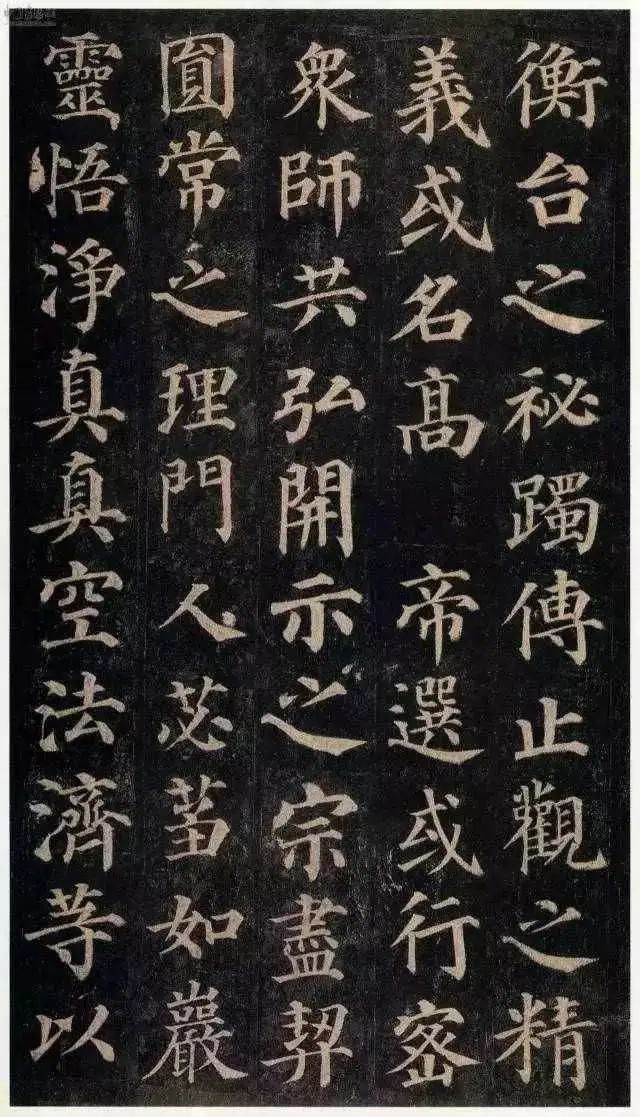 衡台之祕躅傳止觀之精
義或名高　帝選或行密
衆師共弘開示之宗盡契
圎常之理門人苾蒭如巖
靈悟淨真真空法濟等以